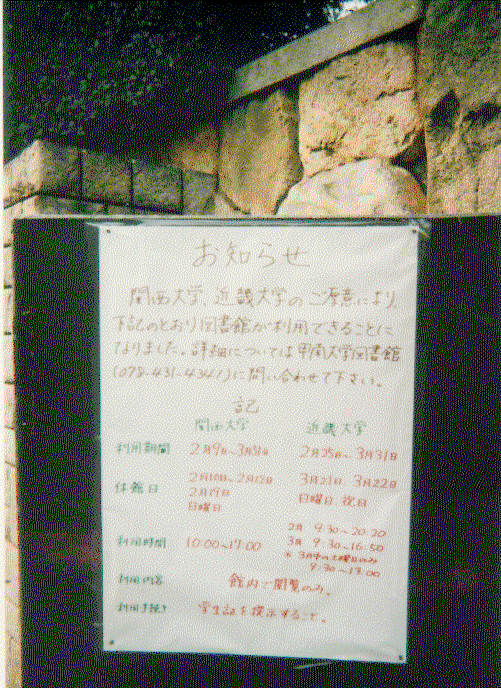 お知らせ
関西大学、近畿大学のご厚意により、
下記のとおり図書館が利用できることに
なりました。詳細については甲南大学図書館
(078-431-4341)に問い合わせて下さい。
記
関西大学 近畿大学
利用期間 2月9日〜3月31日 2月25日〜3月31日
休館日 2月10日〜2月12日 3月21日 3月22日
2月19日 日曜日 祝日
日曜日
2月 9:30〜20:20
利用時間 10:00〜17:00 3月 9:30〜16:50
※3月中の土曜日のみ
9:30〜13:00
利用内容 館内で閲覧のみ。
利用手続き 学生証を提示すること。